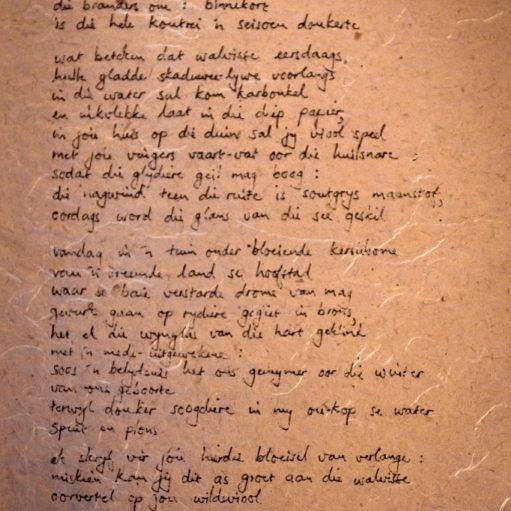 die branders om : binnekort
is die hele kontrei 'n seisoen donkerte
wat beteken dat walvisse eersdaags
hulle gladde skaduwee-lywe voorlangs
in die water sal kom karbonkel
en inkvlekke laat in die diep papier,
in jou huis op die duin sal jy viool speel
met jou vingers vaart-vat oor die huilsnare
sodat die glydere geil mag boog :
die nagwind teen die ruite is soutgrys maanstof,
oordags word die glans van die see geskil
vandag in 'n tuin onder bloeiende kersiebome
van 'n vreemde land se hoofstad
waar se baie verstarde drome van mag
gewurg gaan op rydiere gegiet in brons,
het ek die wynglas van die hart geklink
met 'n mede-uitgewekene :
soos 'n belydenis het ons gemymer oor die winter
van ons geboorte
terwyl donker soogdiere in my ou kop se water
speel en pions
ek skryf vir jou hierdie bloeisel van verlange :
miskien kan jy dit as groet aan die walvisse
oorvertel op jou wildeviool.